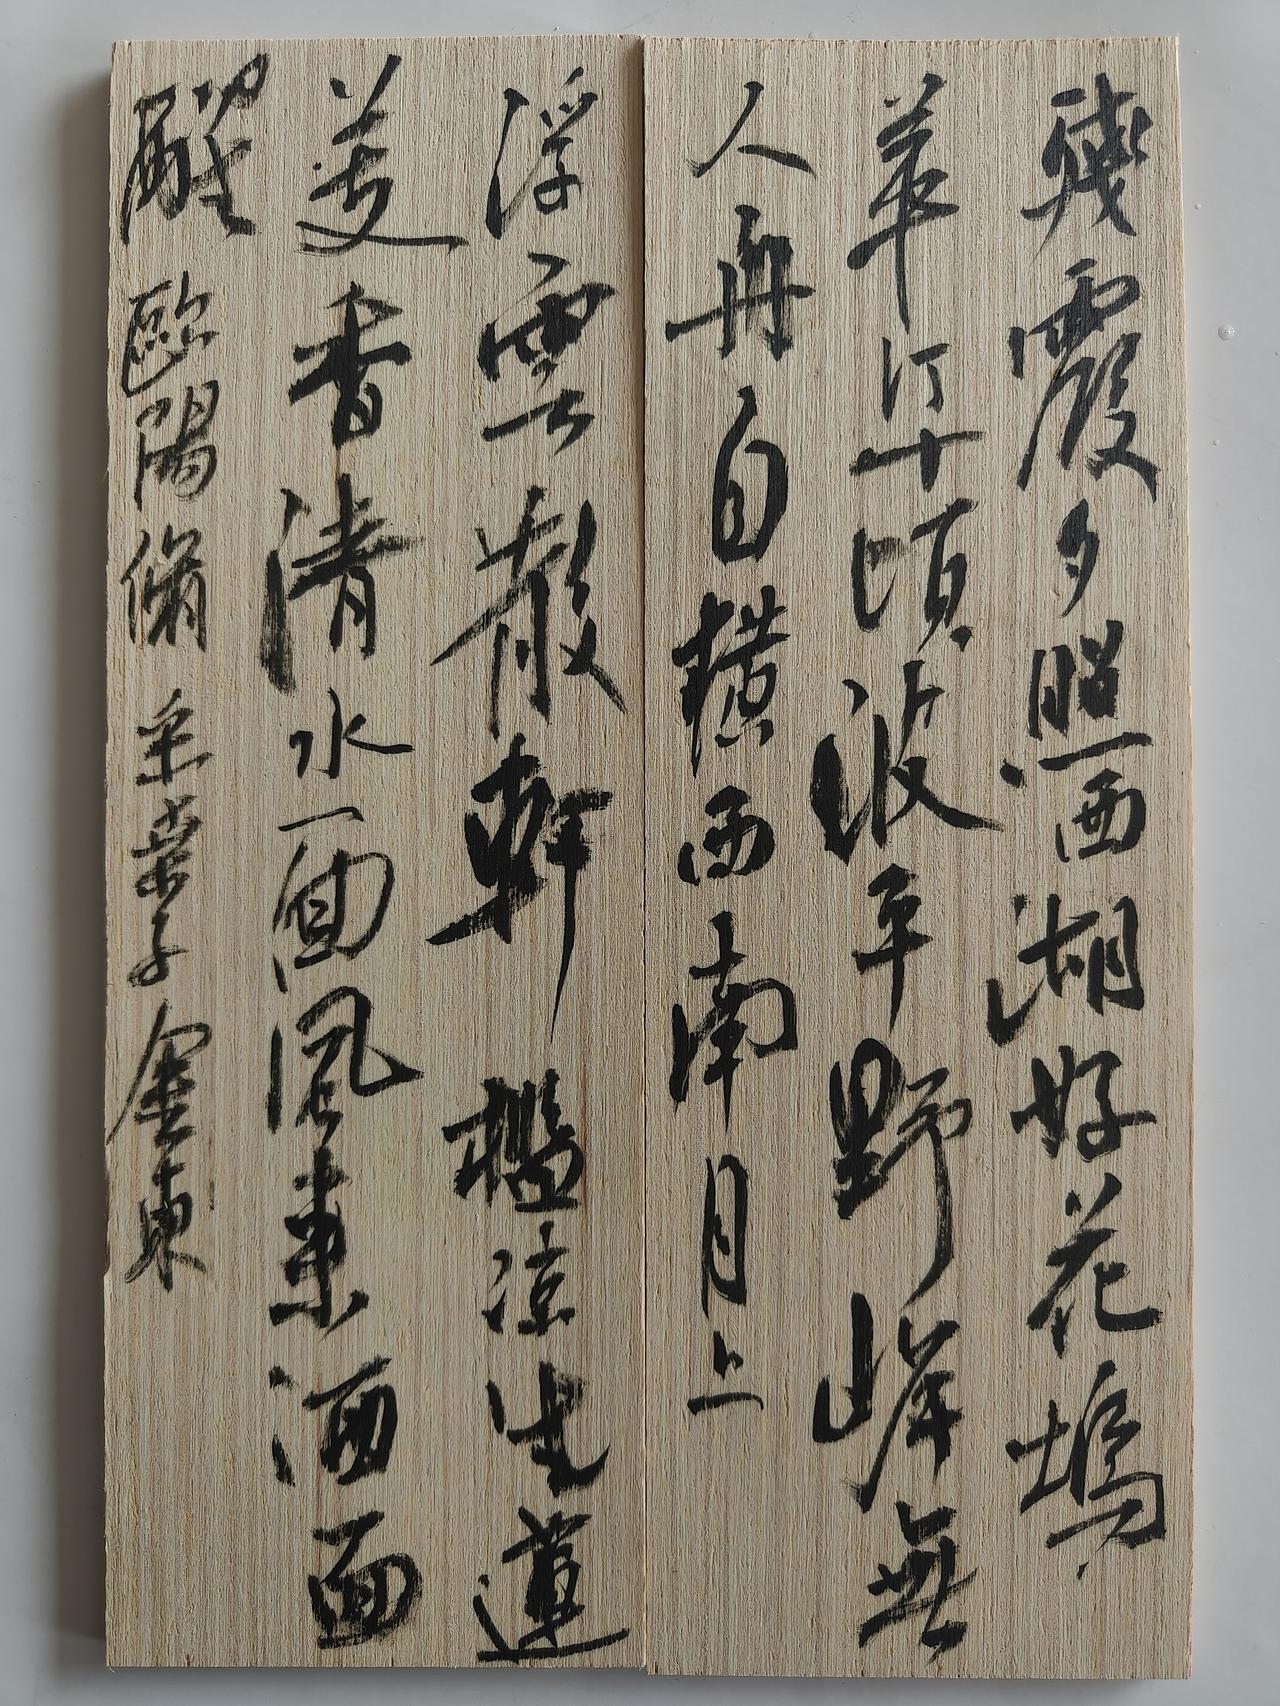 殘霞夕照西湖好花塢
苹汀十頃波平野岸無
人舟自橫西南月上
浮雲散軒檻涼生蓮
芰香清水面風來酒面
醒 歐陽脩 采桑子 金東